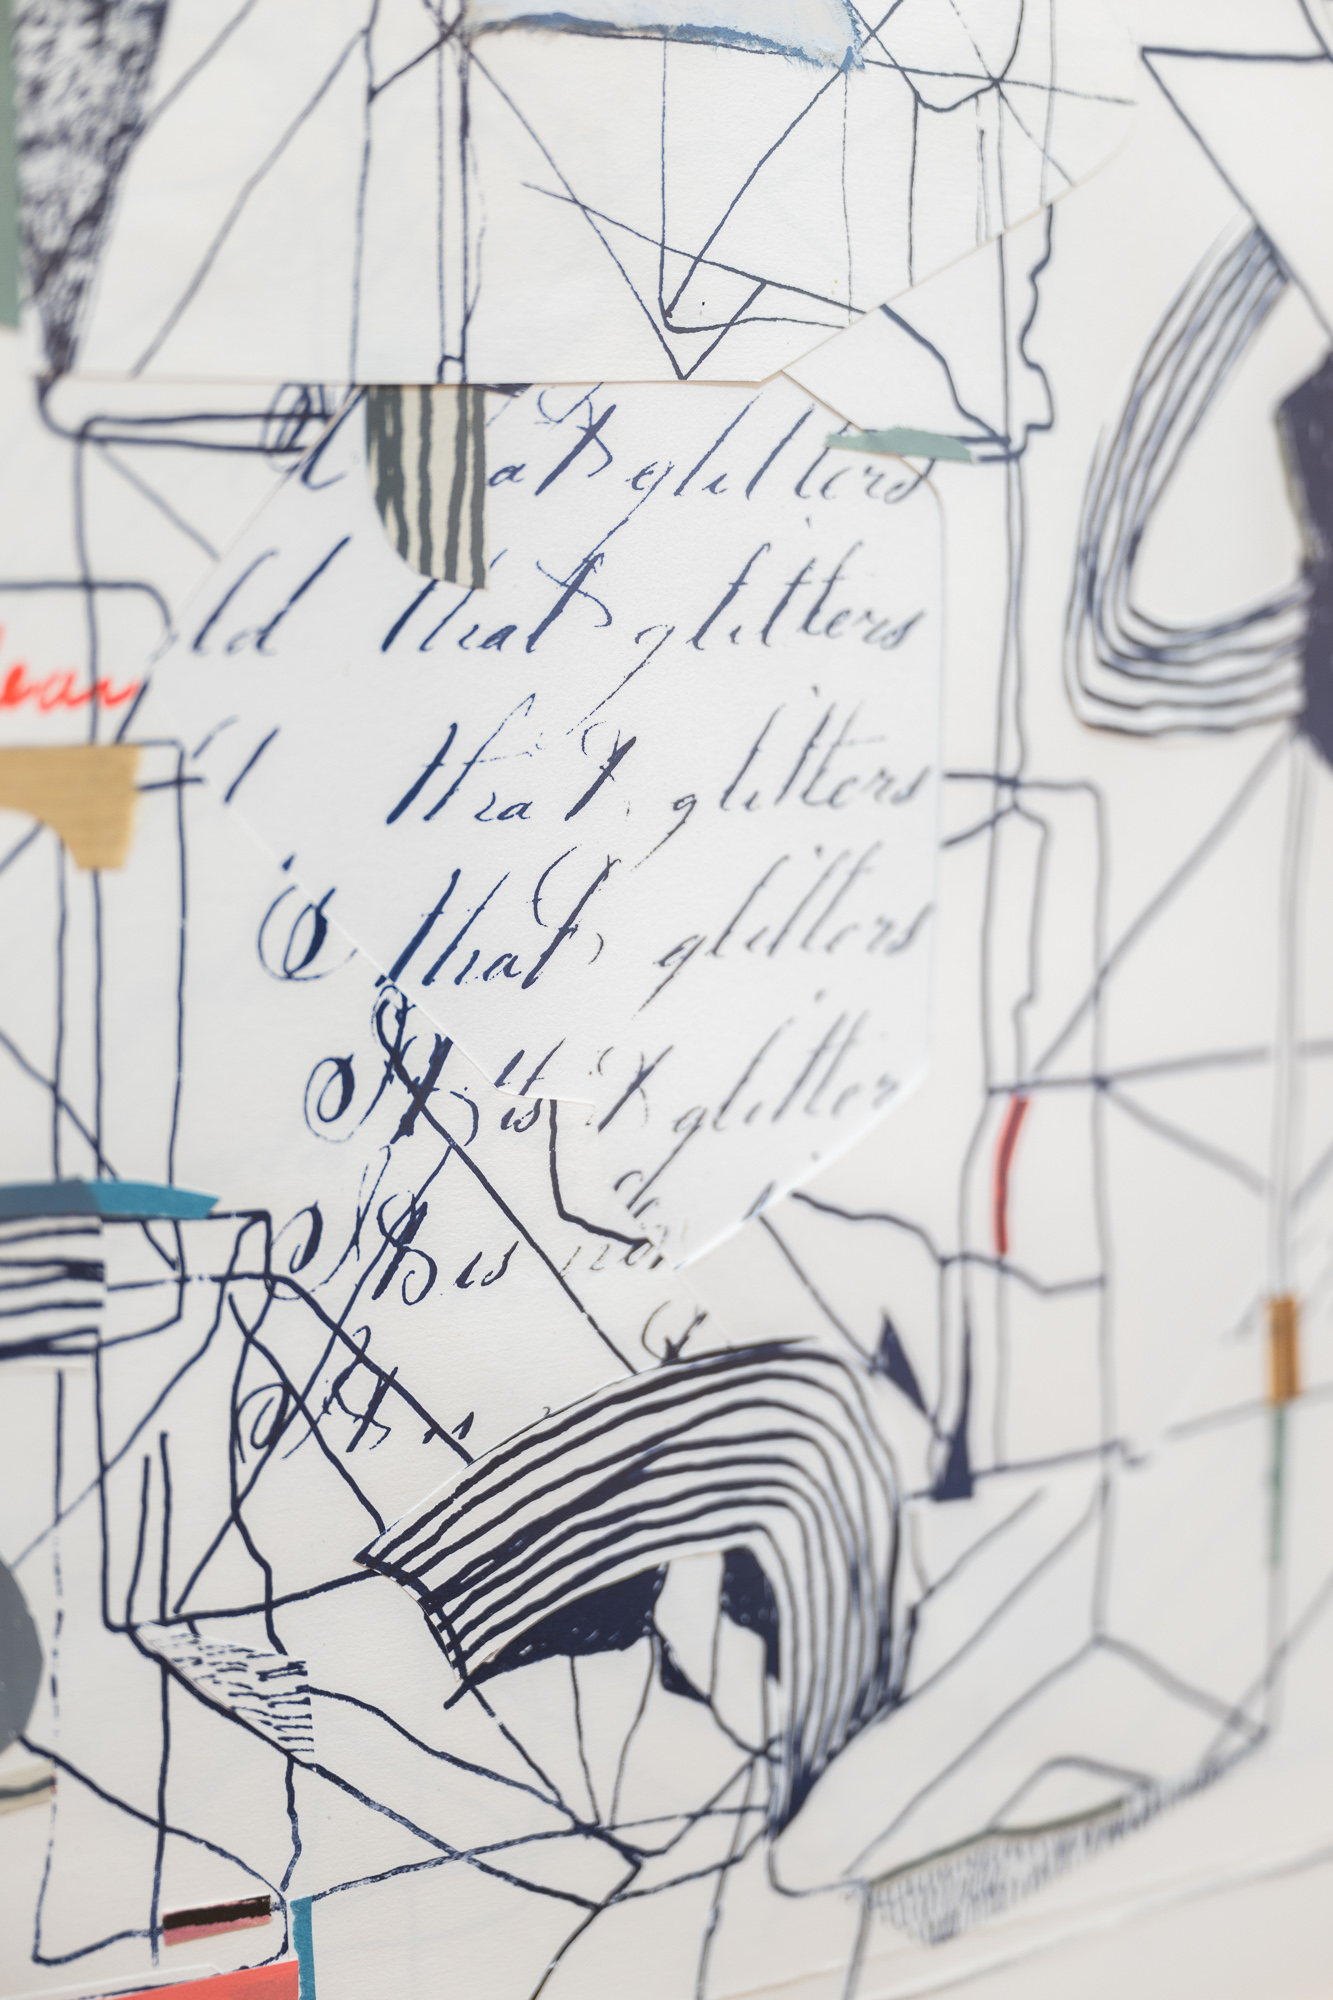 that glitters
ld that glitters
that glitters
that glitters
It is glitter
It is not
It